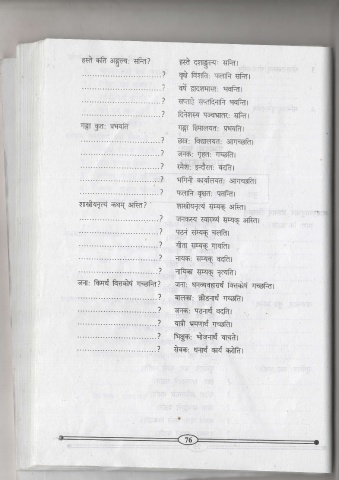 हस्ते कति अङ्गुल्यः सन्ति? हस्ते दशाङ्गुल्यः सन्ति।
..............................? वृक्षे विंशतिः फलानि सन्ति।
..............................? वर्षे द्वादशमासाः भवन्ति।
..............................? सप्ताहे सप्तदिनानि भवन्ति।
..............................? दिनेशस्य पञ्चभ्रातरः सन्ति।
गङ्गा कुतः प्रभवति गङ्गा हिमालयतः प्रभवति।
..............................? छात्रः विद्यालयतः आगच्छति।
..............................? जनकः गृहतः गच्छति।
..............................? रमेशः इन्दौरतः वदति।
..............................? भगिनी कार्यालयतः आगच्छति।
..............................? फलानि वृक्षतः पतन्ति।
शास्त्रीयनृत्यं कथम् अस्ति? शास्त्रीयनृत्यं सम्यक् अस्ति।
..............................? जनकस्य स्वास्थ्यं सम्यक् अस्ति।
..............................? पठनं सम्यक् चलति।
..............................? गीता सम्यक् गायति।
..............................? नायकः सम्यक् वदति।
..............................? नायिका सम्यक् नृत्यति।
जनाः किमर्थं वित्तकोषं गच्छन्ति? जनाः धनव्यवहारार्थं वित्तकोषं गच्छन्ति।
..............................? बालकः क्रीडनार्थं गच्छति।
..............................? जनकः पठनार्थं वदति।
..............................? यात्री भ्रमणार्थं गच्छति।
..............................? भिक्षुकः भोजनार्थं याचते।
..............................? सेवकः धनार्थं कार्यं करोति।
76